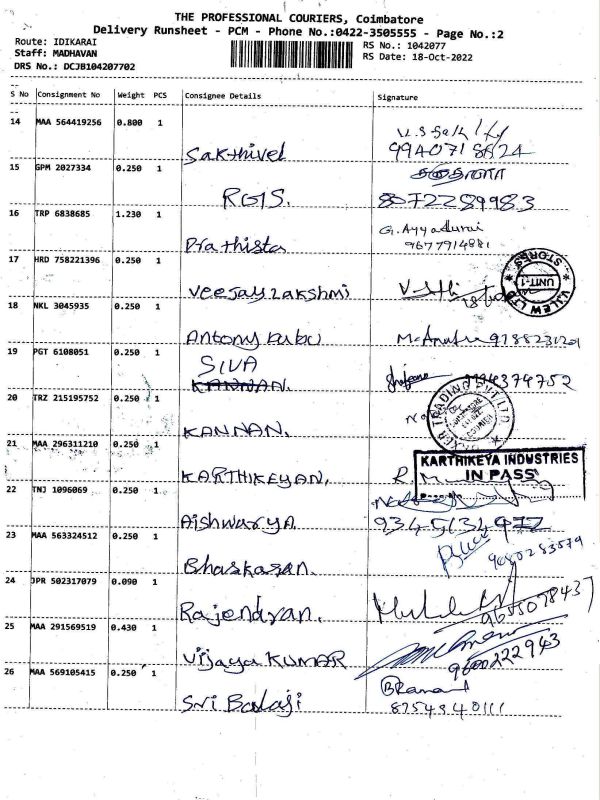 THE PROFESSIONAL COURIERS, Coimbatore
Delivery Runsheet - PCM - Phone No.:0422-3505555 - Page No.:2
Route: IDIKARAI
RS No.: 1042077
Staff: MADHAVAN
RS Date: 18-Oct-2022
DRS No.: DCJB104207702
S No Consignment No Weight PCS Consignee Details Signature
14 MAA 564419256 0.800 1
Sakthivel 9940718624
15 GPM 2027334 0.250 1
RGIS. 8072289983
16 TRP 6838685 1.230 1 G. Ayyadurai
Prathista 9677914881
17 HRD 758221396 0.250 1
Veejay Lakshmi
UNIT-1
STORES
18 NKL 3045935 0.250 1
Antony Babu 9788231201
19 PGT 6108051 0.250 1
SIVA
KANNAN.
20 TRZ 215195752 0.250 1
KANNAN.
21 MAA 296311210 0.250 1
KARTHIKEYAN.
KARTHIKEYA INDUSTRIES
IN PASS
22 TNJ 1096069 0.250 1
Aishwarya 9345134977
23 MAA 563324512 0.250 1
Bhaskaran. 9680283579
24 JPR 502317079 0.090 1
Rajendran. 9655078437
25 MAA 291569519 0.430 1
Vijaya KUMAR 9600222943
26 MAA 569105415 0.250 1
Sri Balaji 8754340111